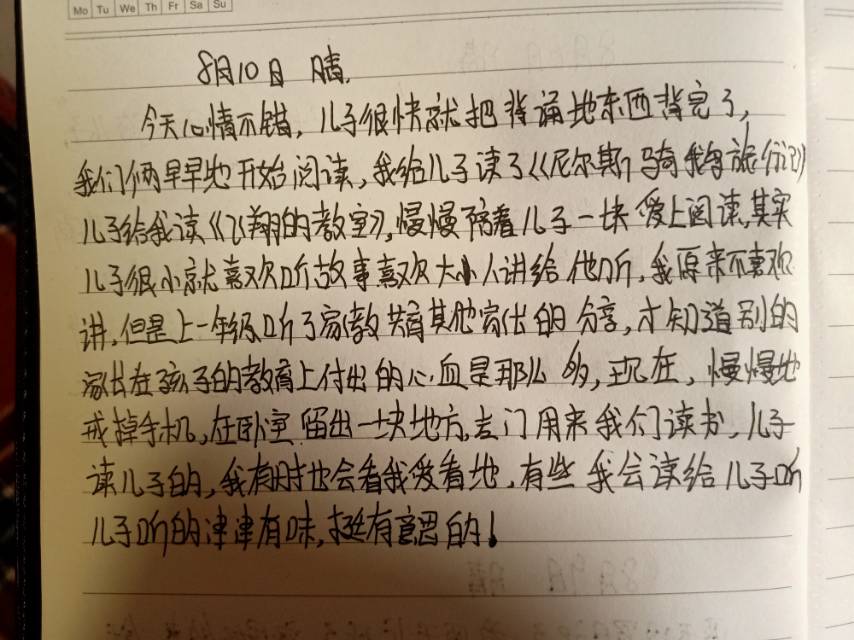 Mo Tu We Th Fr Sa Su
8月10日 晴.
今天心情不错，儿子很快就把背诵地东西背完了，
我们俩早早地开始阅读，我给儿子读了《尼尔斯骑鹅旅行记》
儿子给我读《飞翔的教室》，慢慢陪着儿子一块爱上阅读，其实
儿子很小就喜欢听故事喜欢大人讲给他听，我原来不喜欢
讲，但是上一年级听了家教共育其他家长的分享，才知道别的
家长在孩子的教育上付出的心血是那么多，现在，慢慢地
戒掉手机，在卧室留出一块地方，专门用来我们读书，儿子
读儿子的，我有时也会看我爱看地，有些我会读给儿子听
儿子听的津津有味，挺有意思的！
8月9日 晴